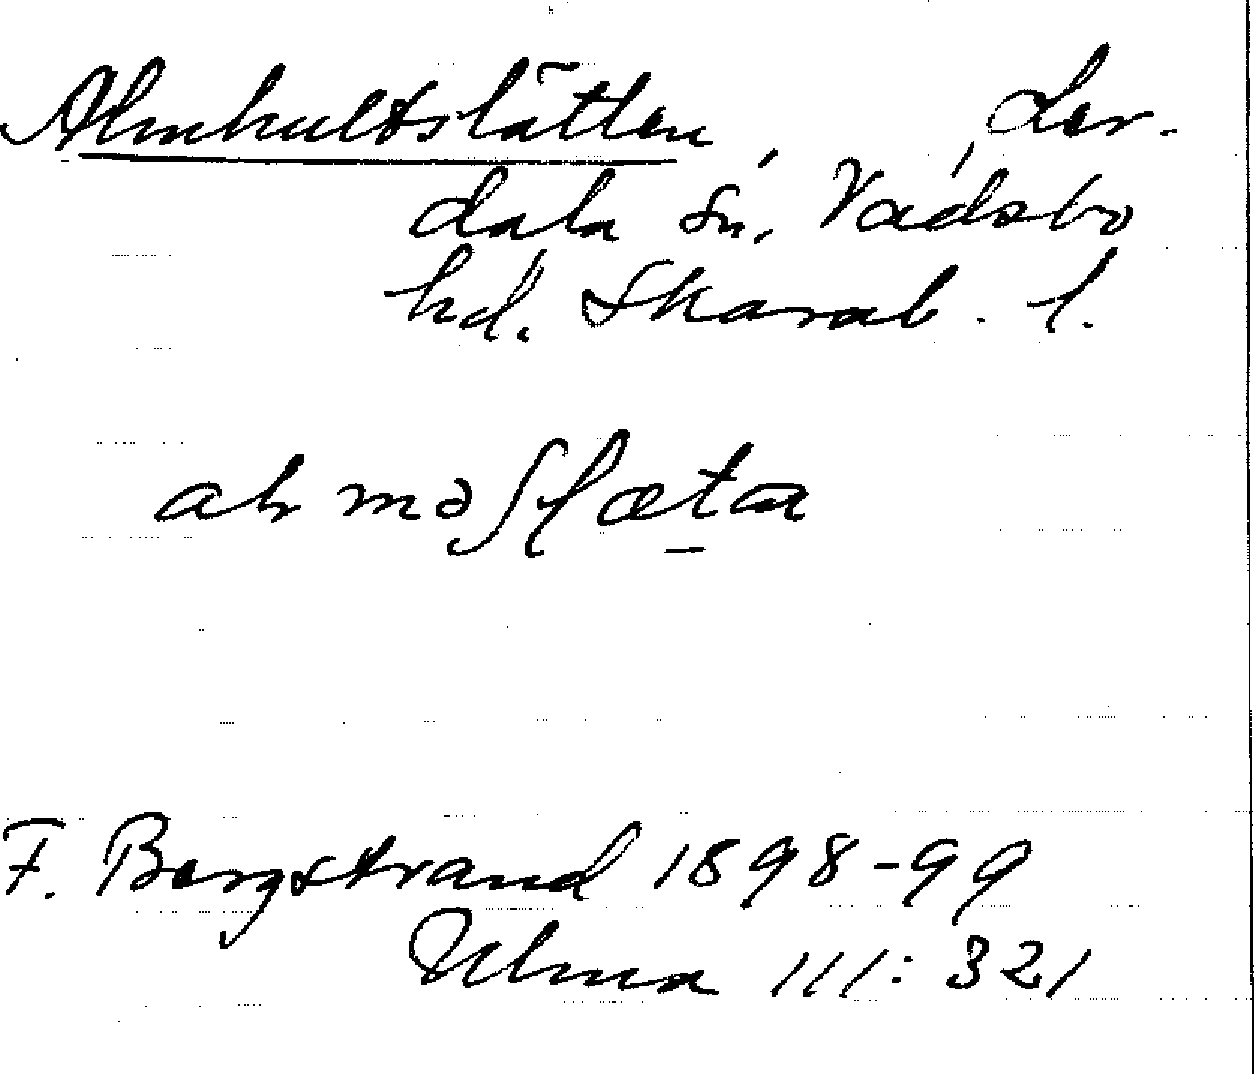 Almhultslätten, Ler-
dala sn, Vadsbo
hd. Skarab. l.
F. Bergstrand 1898-99
Ulma 111: 321